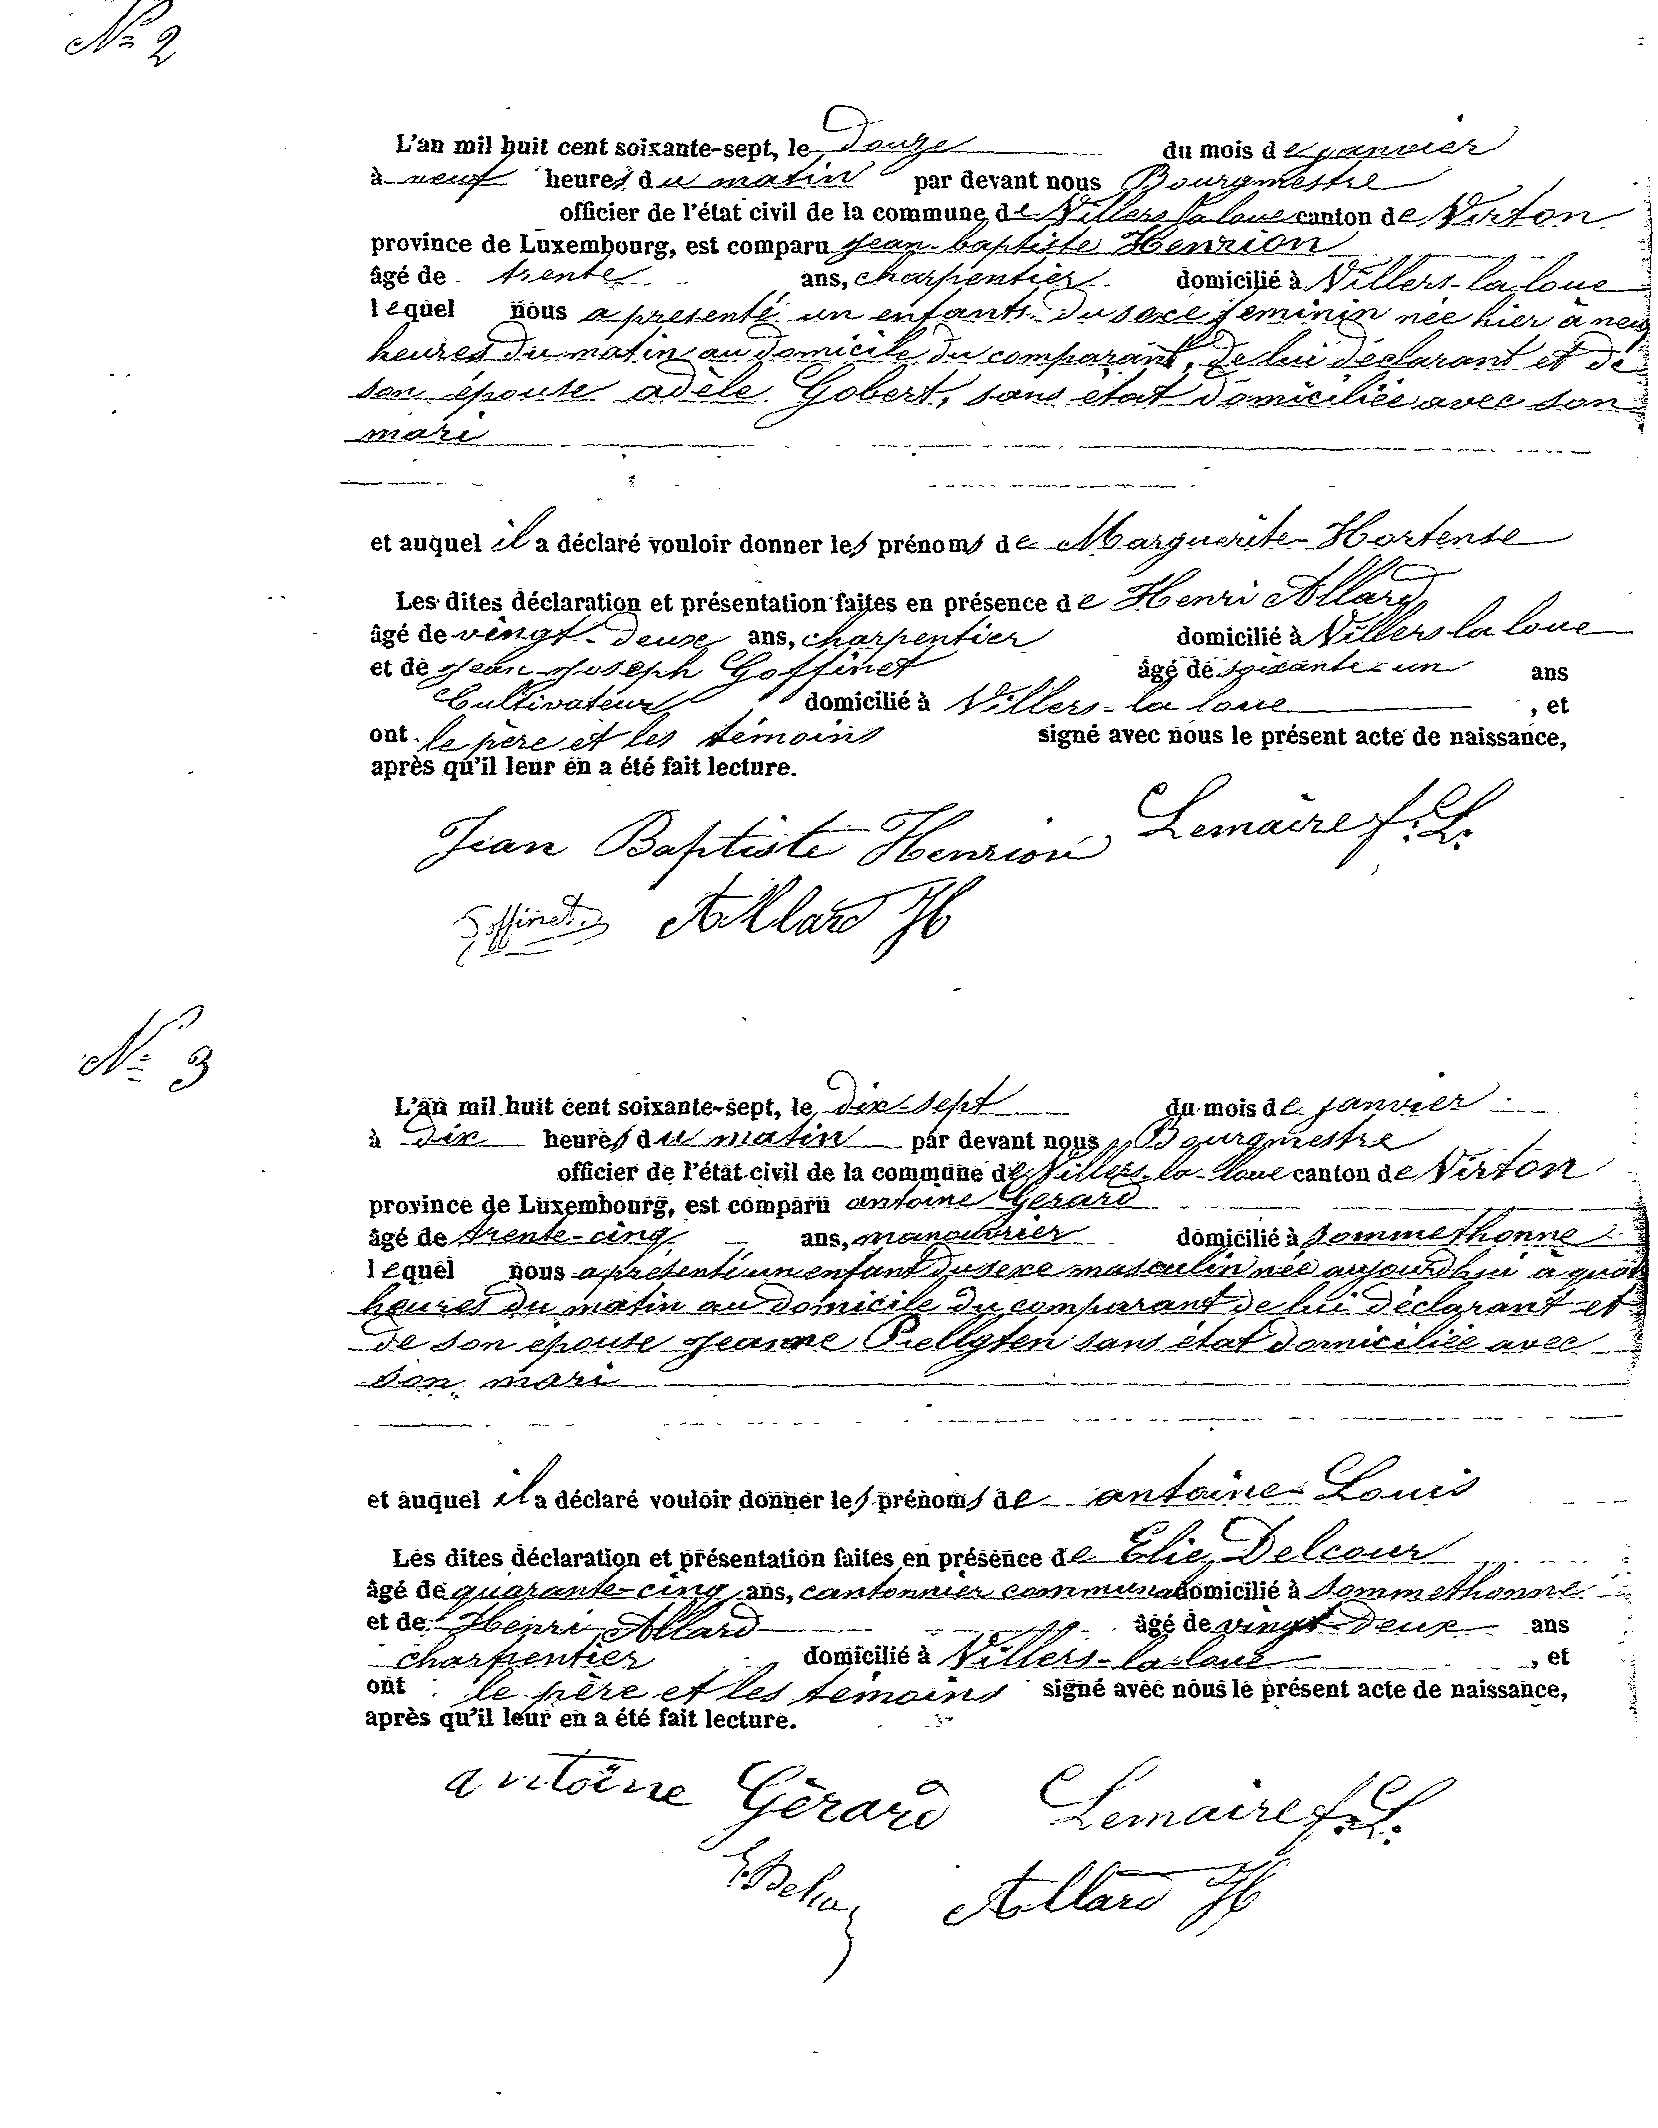 N° 2
L'an mil huit cent soixante-sept, le Douze du mois de janvier
à neuf heures du matin par devant nous Bourgmestre
officier de l'état civil de la commune de Villers-la-loue canton de Virton
province de Luxembourg, est comparu jean-baptiste Henrion
âgé de trente ans, charpentier domicilié à Villers-la-loue
lequel nous a presenté un enfants du sexe feminin née hier à neuf
heures du matin au domicile du comparant, de lui déclarant et de
son épouse adèle Gobert, sans état domiciliée avec son
mari
et auquel il a déclaré vouloir donner les prénoms de Marguerite-Hortense
Les dites déclaration et présentation faites en présence de Henri Allard
âgé de vingt-deux ans, charpentier domicilié à Villers-la loue
et de jean-joseph Goffinet âgé de soixante-un ans
Cultivateur domicilié à Villers-la loue , et
ont le père et les témoins signé avec nous le présent acte de naissance,
après qu'il leur en a été fait lecture.
Jean Baptiste Henrion Lemaire f. L.
Goffinet Allard H
N° 3
L'an mil huit cent soixante-sept, le dix-sept du mois de janvier
à dix heures du matin par devant nous Bourgmestre
officier de l'état civil de la commune de Villers-la-loue canton de Virton
province de Luxembourg, est comparu antoine Gérard
âgé de trente-cinq ans, manouvrier domicilié à sommethonne
lequel nous a présenté un enfant du sexe masculin née aujourd'hui à
heures du matin au domicile du comparant de lui déclarant et
de son épouse jeanne sans état domiciliée avec
son mari
et auquel il a déclaré vouloir donner les prénoms de antoine-Louis
Les dites déclaration et présentation faites en présence de Elie Delcour
âgé de quarante-cinq ans, cantonnier communal domicilié à sommethonne
et de Henri Allard âgé de vingt-deux ans
charpentier domicilié à Villers-la-loue , et
ont le père et les témoins signé avec nous le présent acte de naissance,
après qu'il leur en a été fait lecture.
antoine Gérard Lemaire f. L.
Allard H